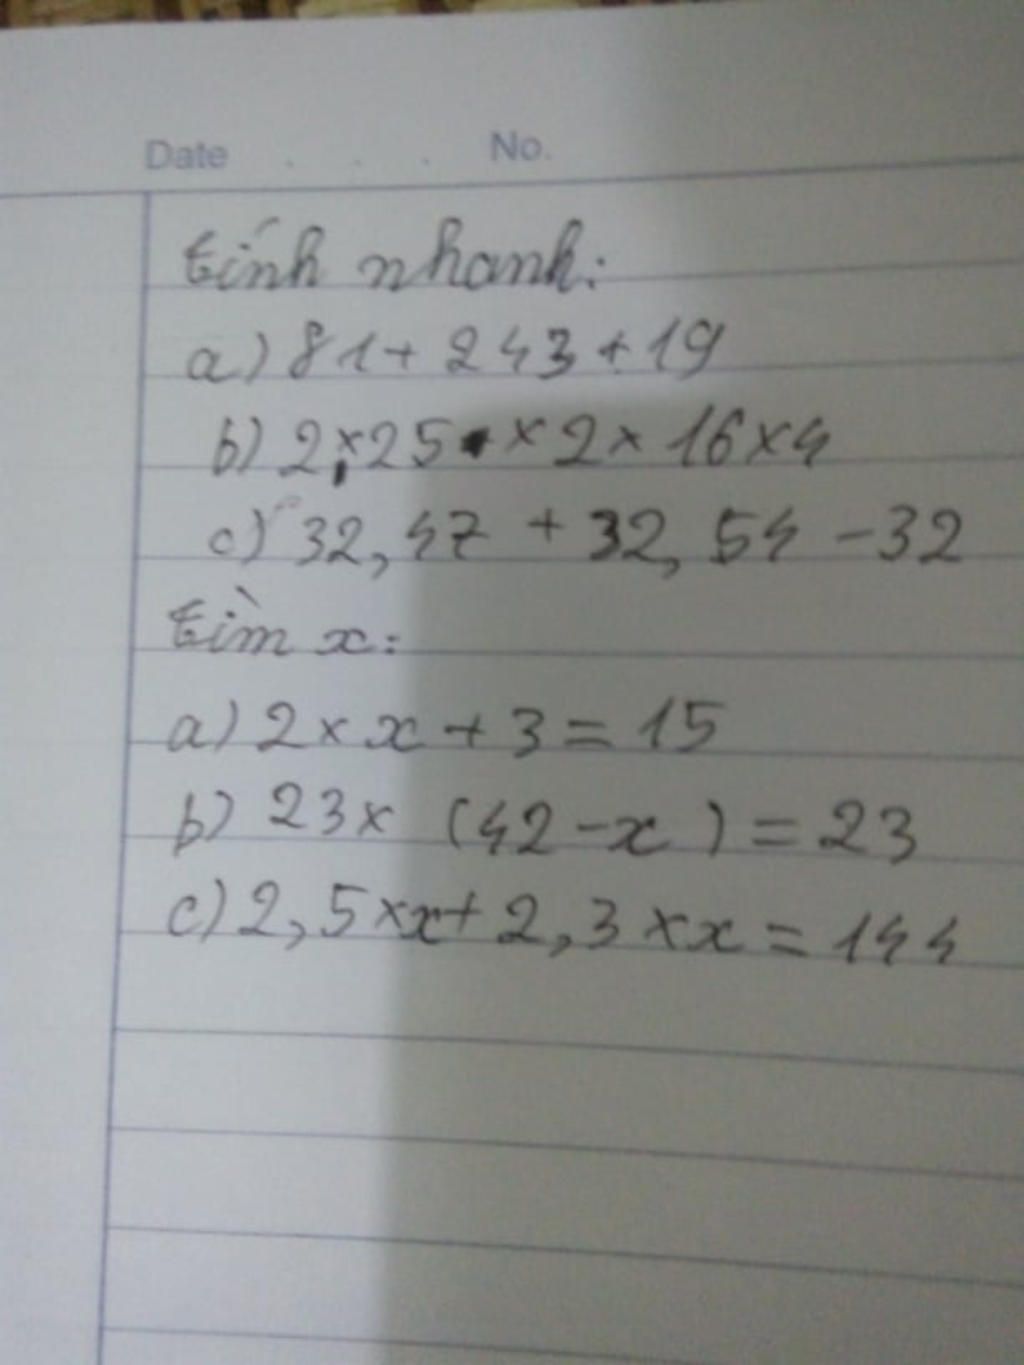 Date . . . No.
tính nhanh:
a) 81 + 243 + 19
b) 2 × 25 × 2 × 16 × 4
c) 32,47 + 32,54 - 32
tìm x:
a) 2 × x + 3 = 15
b) 23 × (42 - x) = 23
c) 2,5 × x + 2,3 × x = 144